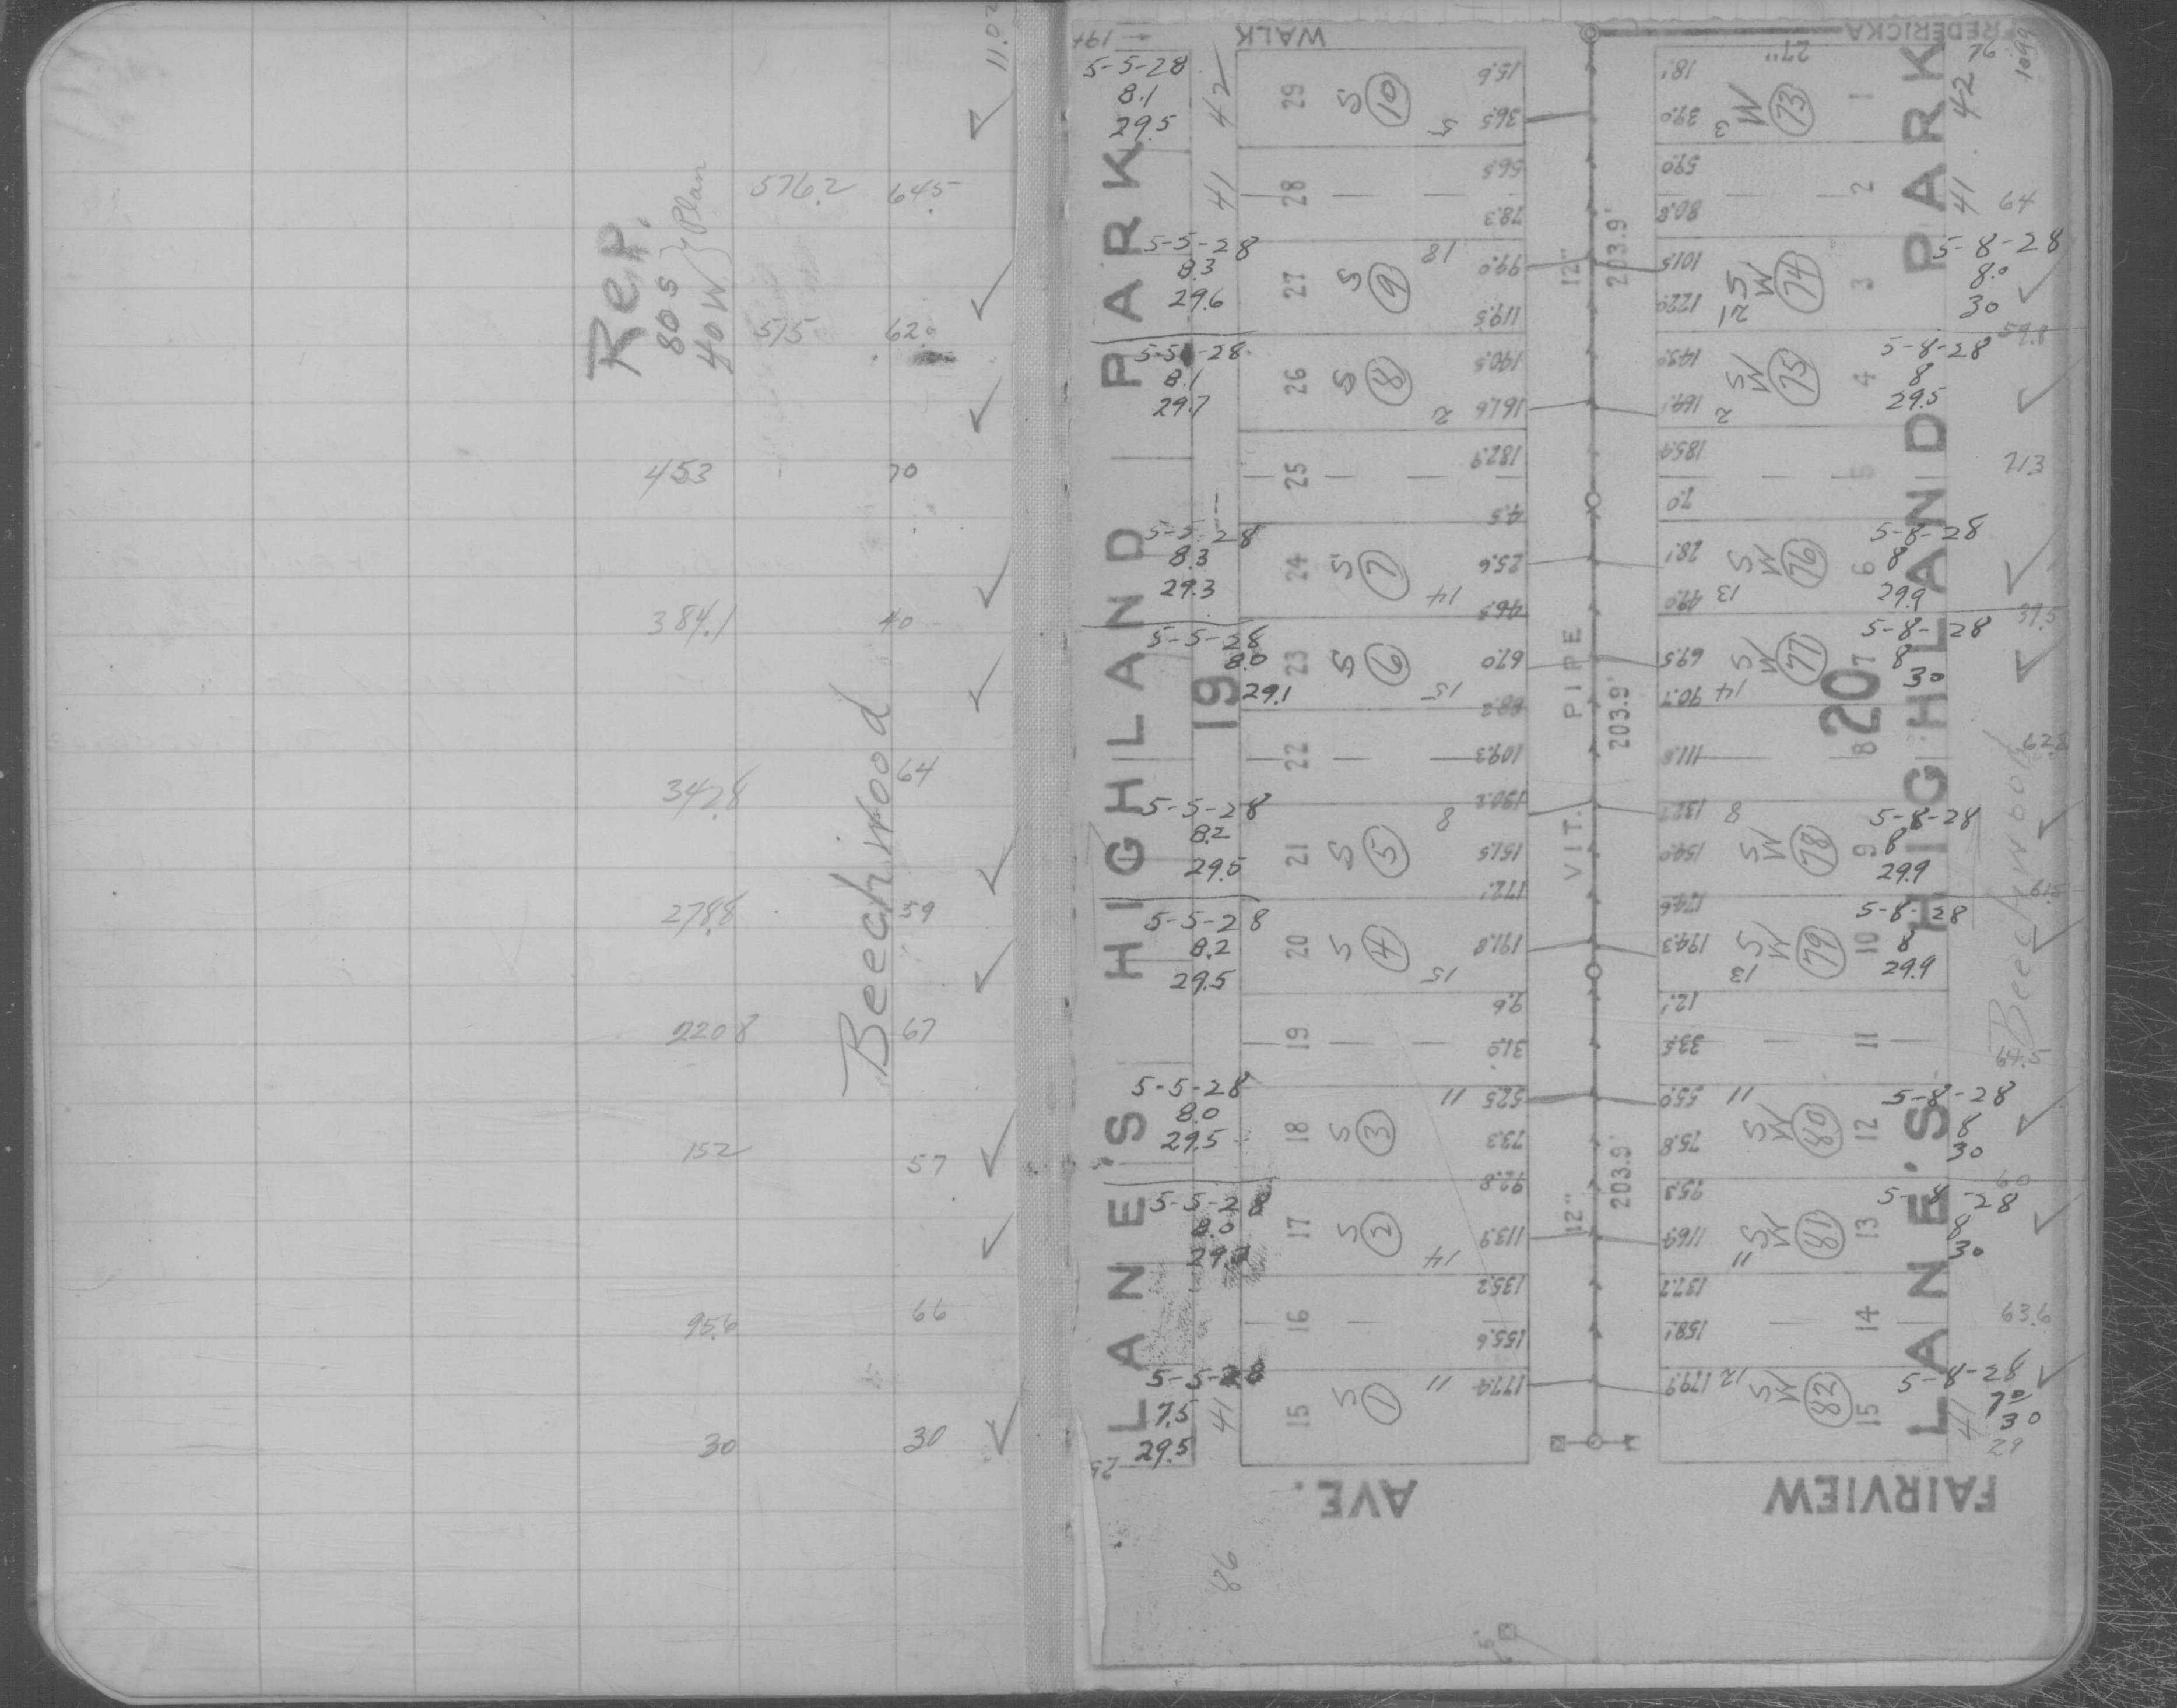 11.02
Rep.
80 S } Plan
40 W
576.2 64.5
515 62.
453 70
384.1 40
342.8 64
278.8 59
220.8 67
152 57
95.6 66
30 30
Beechwood
WALK
FREDERICKA
27"
LANE'S HIGHLAND PARK
19
5-5-28
8.1
29.5
42
41
5-5-28
8.3
29.6
5-5-28
8.1
29.7
5-5-28
8.3
29.3
5-5-28
8.0
29.1
5-5-28
8.2
29.5
5-5-28
8.2
29.5
5-5-28
8.0
29.5
5-5-28
8.0
5-5-28
7.5
29.5
41
86
29 S 10 5 15.6 36.5
28 56.5 78.3
27 S 9 18 99.0 119.5
26 S 8 2 140.5 161.6
25 182.9 4.5
24 S 7 14 25.6 46.5
23 S 6 15 67.0 88.2
22 109.3 130.2
21 S 5 8 151.5 172.1
20 S 4 15 191.8
19 9.6 31.0
18 S 3 11 52.5 73.3
17 S 2 14 92.8 113.9
16 135.2 155.6
15 S 1 11 177.4
12" VIT. PIPE 12"
203.9'
203.9'
203.9'
18.1 39.0 3 W 73 1
59.0 80.8 2
101.5 122.0 12 S W 74 3
143.0 164.1 2 S W 75 4
185.4 7.0 5
28.1 49.0 13 S W 76 6
69.5 90.7 14 S W 77 7
111.8 8
132.7 154.0 8 S W 78 9
174.6 194.3 13 S W 79 10
12.1 33.5 11
55.0 75.8 11 S W 80 12
95.3 116.4 11 S W 81 13
137.7 158.1 14
179.9 12 S W 82 15
20
LANE'S HIGHLAND PARK
76
1099
42
41
64
5-8-28
8.0
30
59.8
5-8-28
8
29.5
71.3
5-8-28
8
29.9
39.5
5-8-28
8
30
62.8
5-8-28
8
29.9
61.5
5-8-28
8
29.9
64.5
5-8-28
8
30
60
5-8-28
8
30
63.6
5-8-28
7.0
30
29
41
Beechwood
AVE.
FAIRVIEW